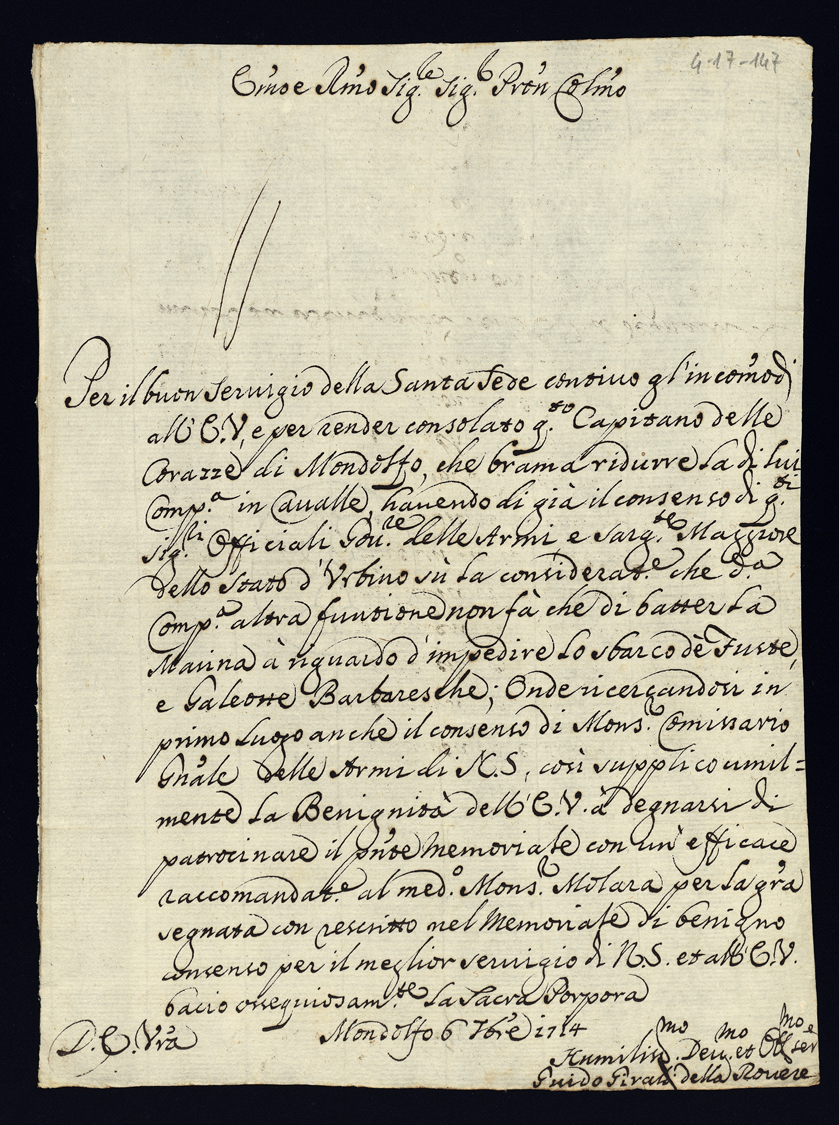 4-17-147
Em̃o e Rm̃o Sig.re Sig.r Prõn Colm̃o
Per il buon servigio della Santa Sede continuo gl'incom̃odi
all'E.V, e per render consolato q.to Capitano delle
Corazze di Mondolfo, che brama ridurre la di lui
Comp.a in Cavalle, havendo di già il consenso di q.ti
Sig.ri Officiali Gov.re delle Armi e Sarg.te Maggiore
dello Stato d'Urbino sù la considerat.e che d.a
Comp.a altra funtione non fà che di batter la
Marina à riguardo d'impedire lo sbarco dè Fuste,
e Galeotte Barbaresche; Onde ricercandosi in
primo luogo anche il consenso di Mons.r Comissario
Gñale delle Armi di N.S, così supplico umil=
mente la Benignità dell'E.V. à degnarsi di
patrocinare il pñte Memoriale con un' efficace
raccomandat.e al med.o Mons.r Molara per la grã
segnata con rescritto nel Memoriale di benigno
consenso per il meglior servigio di N.S. et all'E.V.
bacio ossequiosam.te la Sacra Porpora
D.E. Vrã Mondolfo 6 7bre 1714
Humiliss.mo Dev.mo et Obl.mo ser.e
Guido Girald. della Rovere